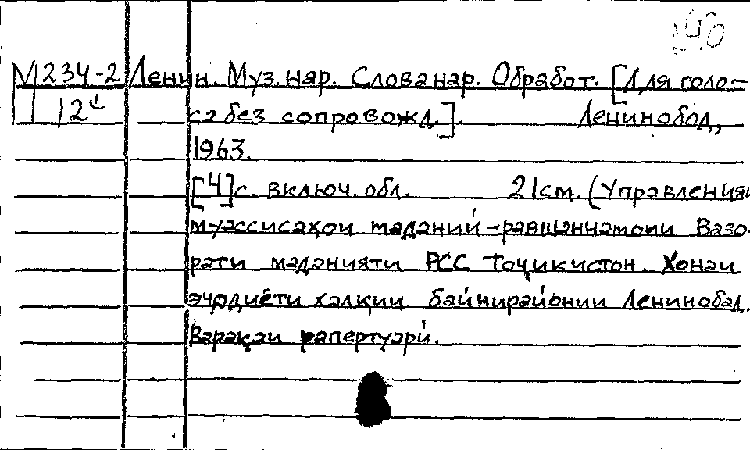 М 234-2 Ленин. Муз. нар. Слова нар. Обработ. [Для голо-
12 са без сопровожд.]. Ленинобод,
1963.
[4] с. включ. обл. 21 см. (Управленияи
муассисаҳои маданий-равшанчатоии Вазо-
рати маданияти РСС Тоҷикистон. Хонаи
эҷодиёти халқии байнирайонии Ленинобад.
Варақаи рапертуарӣ.